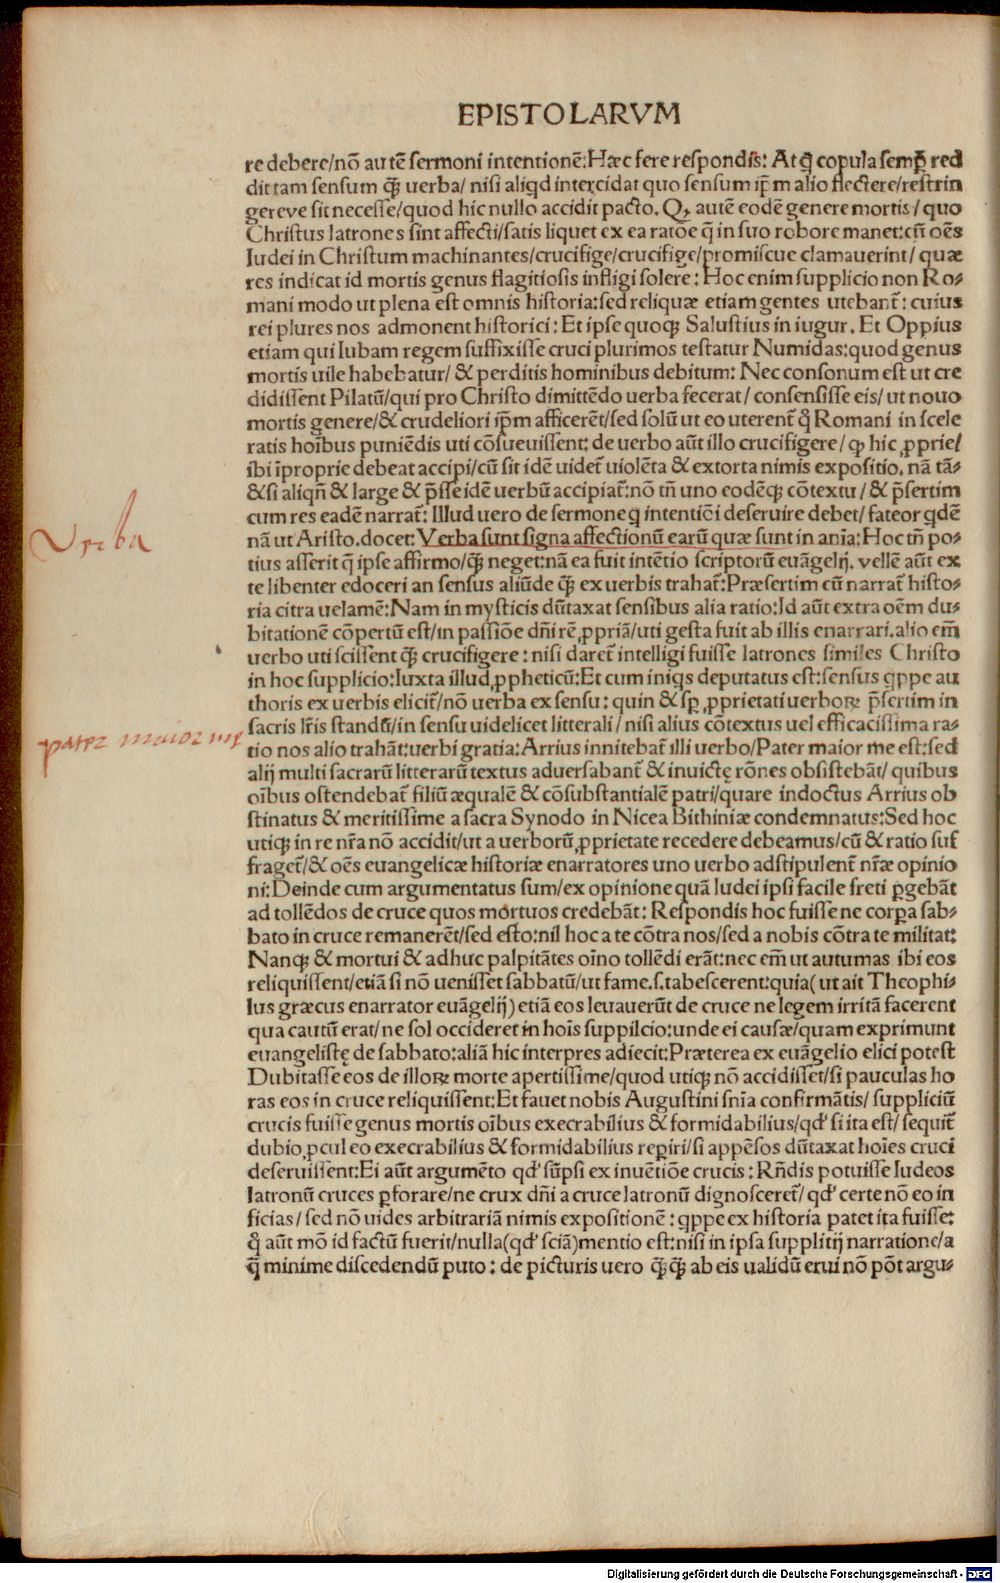 EPISTOLARVM
re debere/nō autē sermoni intentionē: Hæc fere respondis: At q̄ copula semp̄ red
dit tam sensum q̄ꝫ uerba/ nisi aliqd intercidat quo sensum ip̄m alio flectere/restrin
gereve sit necesse/quod hic nullo accidit pacto. Qꝫ autē eodē genere mortis/ quo
Christus latrones sint affecti/satis liquet ex ea ratōe q̄ in suo robore manet: cū oēs
Iudei in Christum machinantes/crucifige/crucifige/promiscue clamauerint/ quæ
res indicat id mortis genus flagitiosis infligi solere: Hoc enim supplicio non Ro-
mani modo ut plena est omnis historia: sed reliquæ etiam gentes utebant̄: cuius
rei plures nos admonent historici: Et ipse quoqꝫ Salustius in iugur. Et Oppius
etiam qui Iubam regem suffixisse cruci plurimos testatur Numidas: quod genus
mortis uile habebatur/ & perditis hominibus debitum: Nec consonum est ut cre
didissent Pilatū/qui pro Christo dimittēdo uerba fecerat/ consensisse eis/ ut nouo
mortis genere/& crudeliori ip̄m afficerēt/sed solū ut eo uterent̄ q̊ Romani in scele
ratis hoībus puniēdis uti cōsueuissent: de uerbo aūt illo crucifigere/ qꝫ hic ꝓprie/
ibi īproprie debeat accipi/cū sit idē uidet̄ uiolēta & extorta nimis expositio. nā tā-
& si aliqn̄ & large & p̄sse idē uerbū accipiat̄: nō tn̄ uno eodēqꝫ cōtextu/ & p̄sertim
cum res eadē narrat̄: Illud uero de sermone q̄ intentiōi deseruire debet/ fateor qdē
nā ut Aristo. docet: Verba sunt signa affectionū earū quæ sunt in anīa: Hoc tn̄ po-
tius asserit q̄ ipse affirmo/q̄ꝫ neget: nā ea fuit intētio scriptorū euāgelij. vellē aūt ex
te libenter edoceri an sensus aliūde q̄ꝫ ex uerbis trahat̄: Præsertim cū narrat̄ histo-
ria citra uelamē: Nam in mysticis dūtaxat sensibus alia ratio: Id aūt extra oēm du-
bitationē cōpertū est/in passiōe dn̄i rē ꝓpriā/uti gesta fuit ab illis enarrari. alio em̄
uerbo uti scissent q̄ꝫ crucifigere: nisi daret̄ intelligi fuisse latrones similes Christo
in hoc supplicio: Iuxta illud ꝓpheticū: Et cum iniqs deputatus est: sensus qppe au
thoris ex uerbis elicit̄/nō uerba ex sensu: quin & sp̄ ꝓprietati uerboꝝ p̄sertim in
sacris lr̄is standū/in sensu uidelicet litterali/ nisi alius cōtextus uel efficacissima ra-
tio nos alio trahāt: uerbi gratia: Arrius innitebat̄ illi uerbo/Pater maior me est: sed
alij multi sacrarū litterarū textus aduersabant̄ & inuictę rōnes obsistebāt/ quibus
oībus ostendebat̄ filiū æqualē & cōsubstantialē patri/quare indoctus Arrius ob
stinatus & meritissime a sacra Synodo in Nicea Bithiniæ condemnatus: Sed hoc
utiqꝫ in re nr̄a nō accidit/ut a uerborū ꝓprietate recedere debeamus/cū & ratio suf
fraget̄/& oēs euangelicæ historiæ enarratores uno uerbo adstipulent̄ nr̄æ opinio
ni: Deinde cum argumentatus sum/ex opinione quā Iudei ipsi facile freti ꝑgebāt
ad tollēdos de cruce quos mortuos credebāt: Respondis hoc fuisse ne corꝑa sab-
bato in cruce remanerēt/sed esto: nil hoc a te cōtra nos/sed a nobis cōtra te militat:
Nanqꝫ & mortui & adhuc palpitātes oīno tollēdi erāt: nec em̄ ut autumas ibi eos
reliquissent/etiā si nō uenisset sabbatū/ut fame.s.tabescerent: quia( ut ait Theophi-
lus græcus enarrator euāgelij) etiā eos leuauerūt de cruce ne legem irritā facerent
qua cautū erat/ne sol occideret in hoīs suppilcio: unde ei causæ/quam exprimunt
euangelistę de sabbato: aliā hic interpres adiecit: Præterea ex euāgelio elici potest
Dubitasse eos de illoꝝ morte apertissime/quod utiqꝫ nō accidisset/si pauculas ho
ras eos in cruce reliquissent: Et fauet nobis Augustini snīa confirmātis/ suppliciū
crucis fuisse genus mortis oībus execrabilius & formidabilius/qd' si ita est/ sequit̄
dubio ꝓcul eo execrabilius & formidabilius reꝑiri/si appēsos dūtaxat hoīes cruci
deseruissent: Ei aūt argumēto qd' sūpsi ex inuētiōe crucis: Rn̄dis potuisse Iudeos
latronū cruces ꝑforare/ne crux dn̄i a cruce latronū dignosceret̄/ qd' certe nō eo in
ficias/ sed nō uides arbitrariā nimis expositionē: qppe ex historia patet ita fuisse:
q̊ aūt mō id factū fuerit/nulla(qd' sciā)mentio est: nisi in ipsa supplitij narratione/a
q̄ minime discedendū puto: de picturis uero q̄ꝫq̄ꝫ ab eis ualidū erui nō pōt argu-
Verba
pater maior me
Digitalisierung gefördert durch die Deutsche Forschungsgemeinschaft - DFG